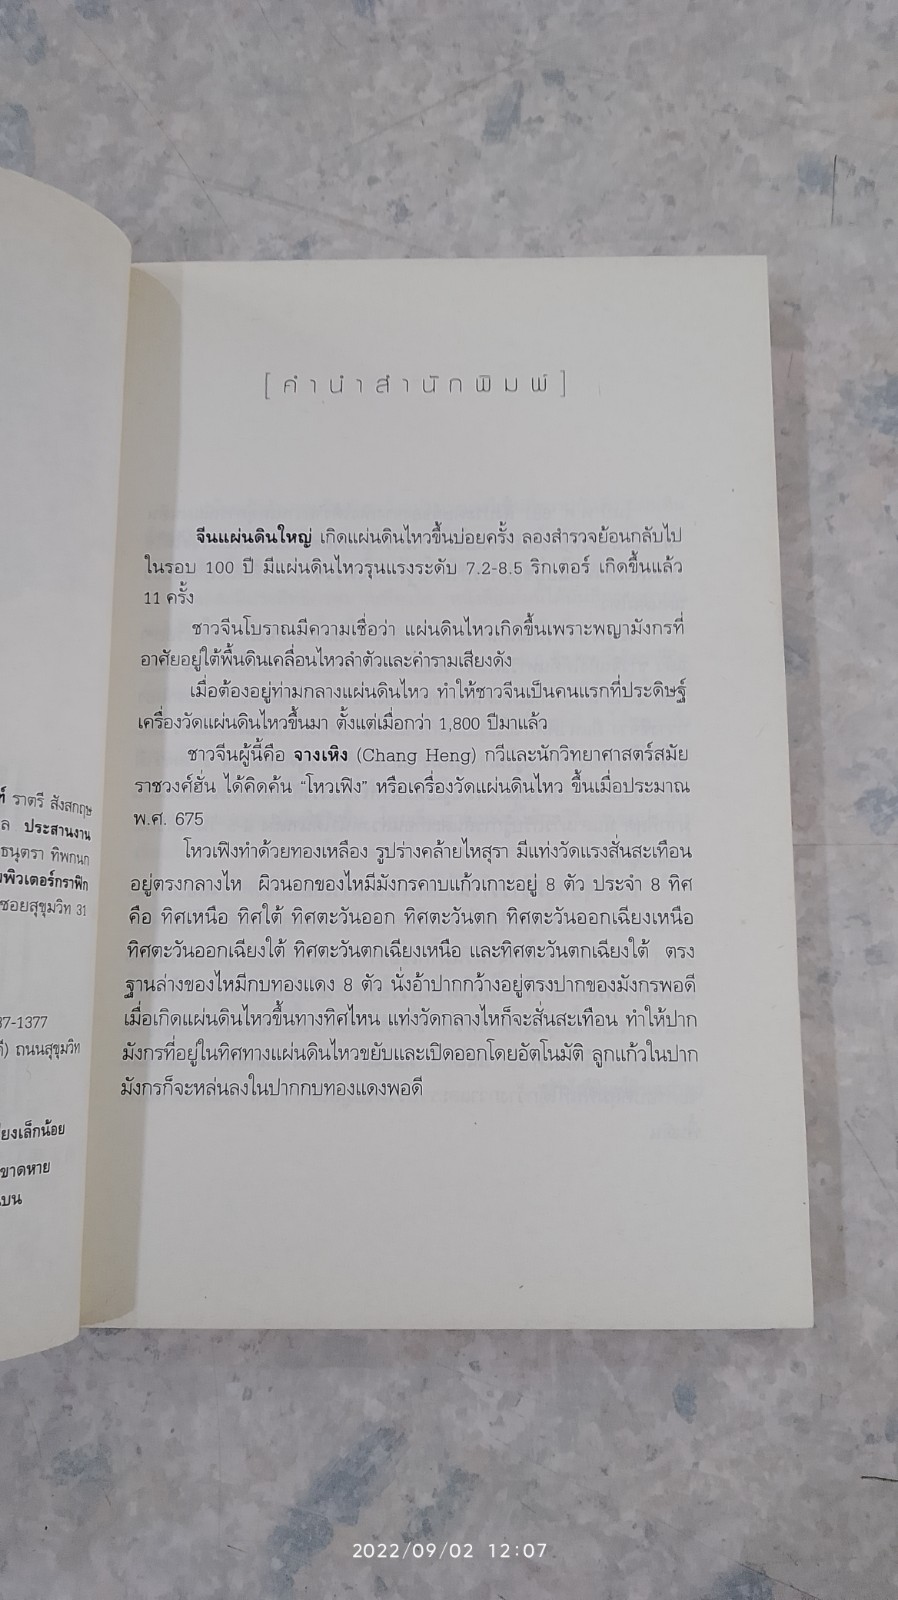 [คำนำสำนักพิมพ์]
จีนแผ่นดินใหญ่ เกิดแผ่นดินไหวขึ้นบ่อยครั้ง ลองสำรวจย้อนกลับไป
ในรอบ 100 ปี มีแผ่นดินไหวรุนแรงระดับ 7.2-8.5 ริกเตอร์ เกิดขึ้นแล้ว
11 ครั้ง
ชาวจีนโบราณมีความเชื่อว่า แผ่นดินไหวเกิดขึ้นเพราะพญามังกรที่
อาศัยอยู่ใต้พื้นดินเคลื่อนไหวลำตัวและคำรามเสียงดัง
เมื่อต้องอยู่ท่ามกลางแผ่นดินไหว ทำให้ชาวจีนเป็นคนแรกที่ประดิษฐ์
เครื่องวัดแผ่นดินไหวขึ้นมา ตั้งแต่เมื่อกว่า 1,800 ปีมาแล้ว
ชาวจีนผู้นี้คือ จางเหิง (Chang Heng) กวีและนักวิทยาศาสตร์สมัย
ราชวงศ์ฮั่น ได้คิดค้น “โหวเฟิง” หรือเครื่องวัดแผ่นดินไหว ขึ้นเมื่อประมาณ
พ.ศ. 675
โหวเฟิงทำด้วยทองเหลือง รูปร่างคล้ายไหสุรา มีแท่งวัดแรงสั่นสะเทือน
อยู่ตรงกลางไห ผิวนอกของไหมีมังกรคาบแก้วเกาะอยู่ 8 ตัว ประจำ 8 ทิศ
คือ ทิศเหนือ ทิศใต้ ทิศตะวันออก ทิศตะวันตก ทิศตะวันออกเฉียงเหนือ
ทิศตะวันออกเฉียงใต้ ทิศตะวันตกเฉียงเหนือ และทิศตะวันตกเฉียงใต้ ตรง
ฐานล่างของไหมีกบทองแดง 8 ตัว นั่งอ้าปากกว้างอยู่ตรงปากของมังกรพอดี
เมื่อเกิดแผ่นดินไหวขึ้นทางทิศไหน แท่งวัดกลางไหก็จะสั่นสะเทือน ทำให้ปาก
มังกรที่อยู่ในทิศทางแผ่นดินไหวขยับและเปิดออกโดยอัตโนมัติ ลูกแก้วในปาก
มังกรก็จะหล่นลงในปากกบทองแดงพอดี
ราตรี สังสกฤษ
ล ประสานงาน
ธนุตรา ทิพกนก
พิวเตอร์กราฟิก
ซอยสุขุมวิท 31
37-1377
) ถนนสุขุมวิท
ยงเล็กน้อย
ขาดหาย
บน
2022/09/02 12:07